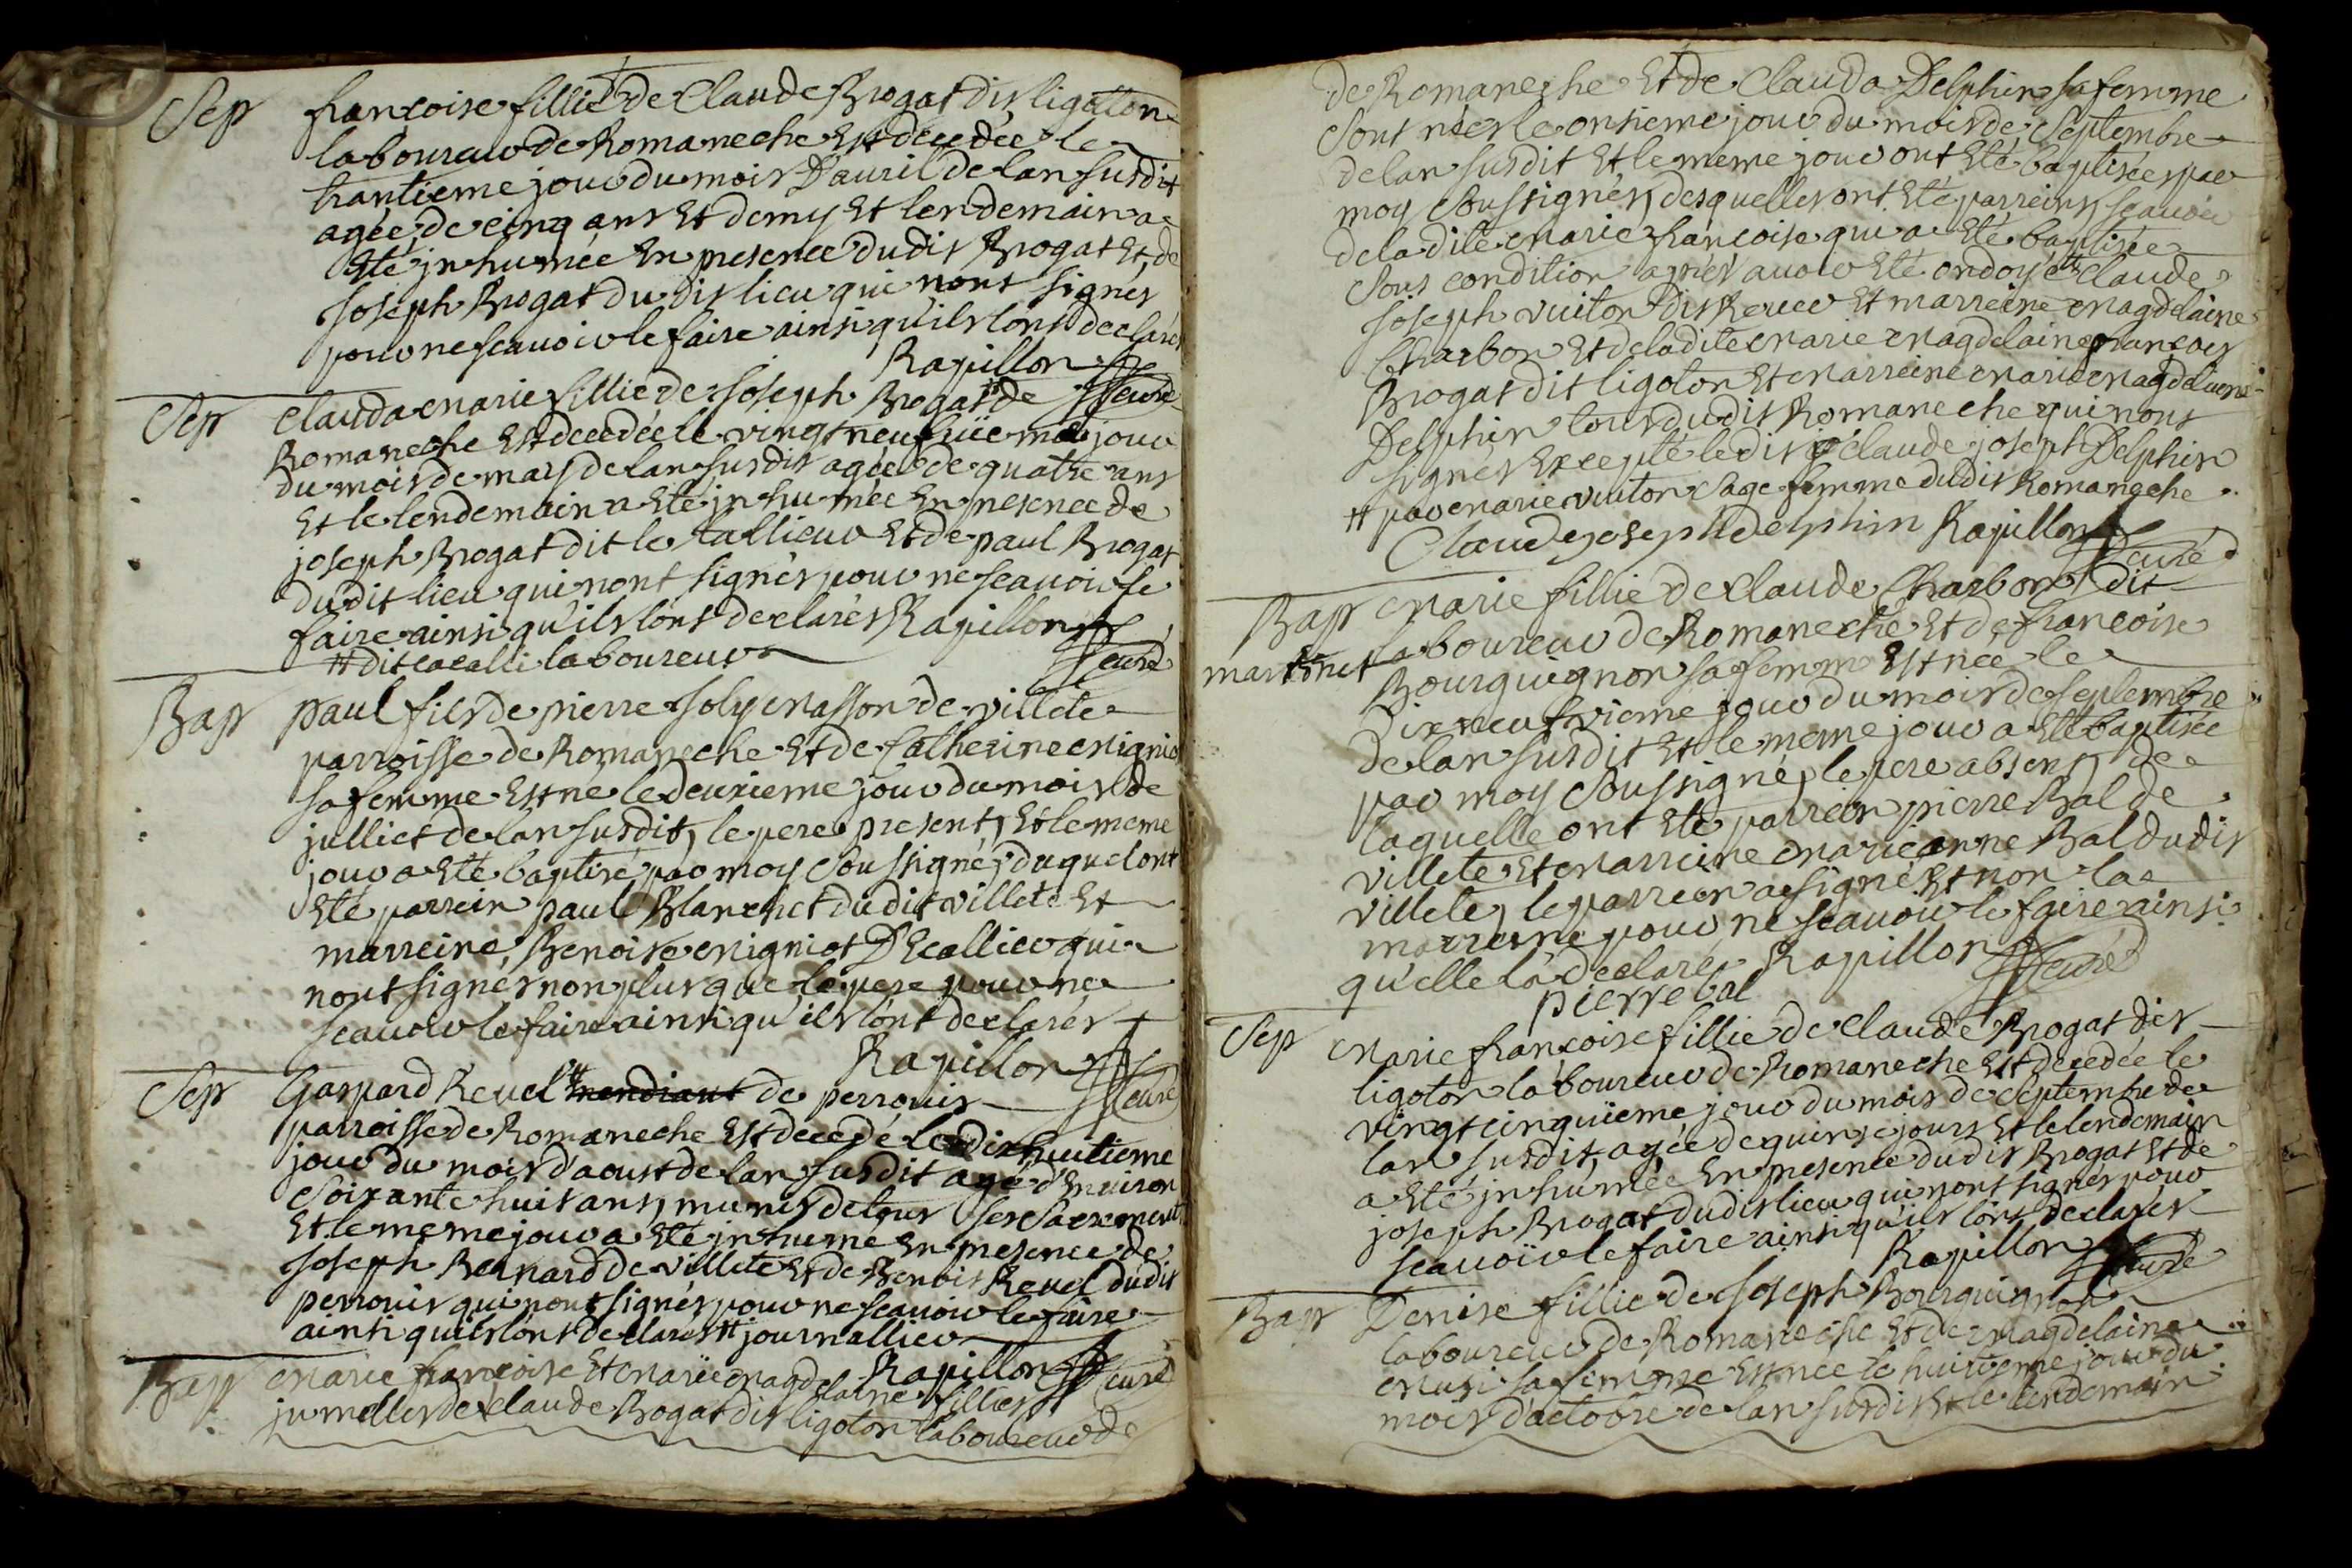 Sep françoise fillie de Claude Brogat dit ligotton
laboureur de Romaneche Est decedée le
trantieme jour du mois D'auril de lan susdit
agée de cinq ans Et demy Et lendemain a
Eté jnhumée En presence dudit Brogat Et de
Joseph Brogat dudit lieu qui nont signés
pour ne scauoir le faire ainsi qu'ils lont declarés
Rapillon curé
Sep Clauda Marie fillie de Joseph Brogat # de
Romaneche Est decedée le vingt neufuieme jour
du mois de may de lan susdit agée de quatre ans
Et le lendemain a Eté jnhumée En presence de
joseph Brogat dit le tallieur Et de paul Brogat
dudit lieu qui nont signés pour ne scauoir le
faire ainsi qu'ils lont declarés Rapillon
# dit cacalli laboureur curé
Bap paul fils de pierre Joly Masson de villete
parroisse de Romaneche Et de Catherine Migniot
sa femme Est né le deuxieme jour du mois de
julliet de lan susdit, le pere present, Et le meme
jour a Eté baptisé par moy soussigné, duquel ont
Eté parrein paul Blanchet dudit villete Et
marreine, Benoite Migniot D'Ecallieu qui
nont signés non plus que le pere pour ne
scauoir le faire ainsi qu'ils lont declarés
Rapillon curé
Sep Gaspard Reuel # mendiant de perrouis
parroisse de Romaneche Est decedé le dixhuitieme
jour du mois d'aoust de lan susdit agé d'Enuiron
Soixante huit ans, munis de tous ses sacrements
Et le meme jour a Eté jnhumé En presence de
Joseph Bernard de villete Et de Benois Reuel dudit
perrouis qui nont signés pour ne scauoir le faire
ainsi qu'ils lont declarés # journallier
Rapillon curé
Bap Marie françoise Et Marie Magdelaine fillies
jumelles de Claude Brogat dit ligoton laboureur de
de Romaneche Et de Clauda Delphin sa femme
Sont nées le onsieme jour du mois de Septembre
de lan susdit Et le meme jour ont Eté baptisées par
moy soussigné, desquelles ont Eté parreins, scauoir
de la dite Marie françoise qui a Eté baptisée
Sous condition après auoir Eté ondoyée # Claude
Joseph vuiton dit Reuer Et marreine Magdelaine
Charbon Et de la dite Marie Magdelaine françois
Brogat dit ligoton Et Marreine Marie Magdelaine
Delphin tous dudit Romaneche qui nont
signés Excepté ledit Claude joseph Delphin
# par Marie vuiton Sage femme dudit Romaneche
Claude joseph delphin Rapillon
curé
Bap Marie fillie de Claude Charbon dit
martinet laboureur de Romaneche Et de françoise
Bourguignon sa femme Est née le
Dix neufvieme jour du mois de Septembre
de lan susdit Et le meme jour a Eté baptisée
par moy soussigné, le pere absent, de
laquelle ont Eté parrein pierre Bal de
villete Et Marreine Marie anne Bal dudit
villete, le parrein a signé Et non la
marreine pour ne scauoir le faire ainsi
qu'elle la declaré Rapillon curé
pierre bal
Sep Marie françoise fillie de Claude Brogat dit
ligoton laboureur de Romaneche Est decedée le
vingt cinquieme jour du mois de Septembre de
lan susdit, agée de quinze jours Et le lendemain
a Eté jnhumée En presence dudit Brogat Et de
joseph Brogat dudit lieu qui nont signés pour
scauoir le faire ainsi qu'ils lont declarés
Rapillon curé
Bap Denise fillie de Joseph Bourguignon
laboureur de Romaneche Et de Magdelaine
sa femme Est née le huitieme jour du
mois d'actobre de lan susdit Et le lendemain